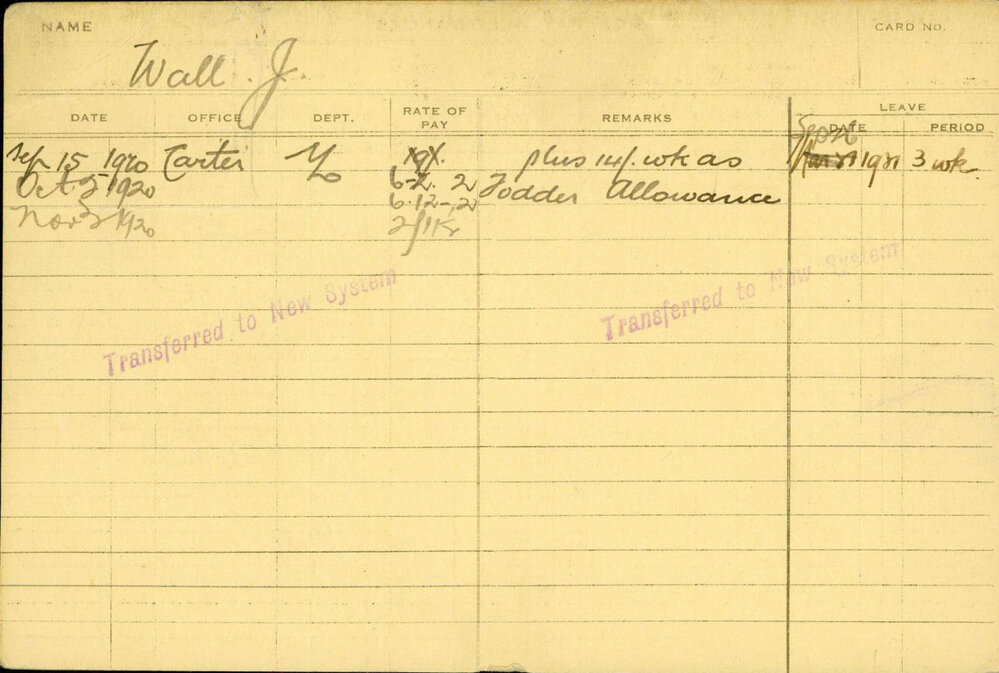 NAME
CARD No.
Wall. J.
DATE OFFICE DEPT. RATE OF PAY REMARKS LEAVE DATE PERIOD
Sep 15 1920 Carter 19/. plus 14/. wk as 1921 3 wk.
Oct 5 1920 6-2. 2 Fodder Allowance
Nov 2 1920 6.12-.2
Transferred to New System
Transferred to New System